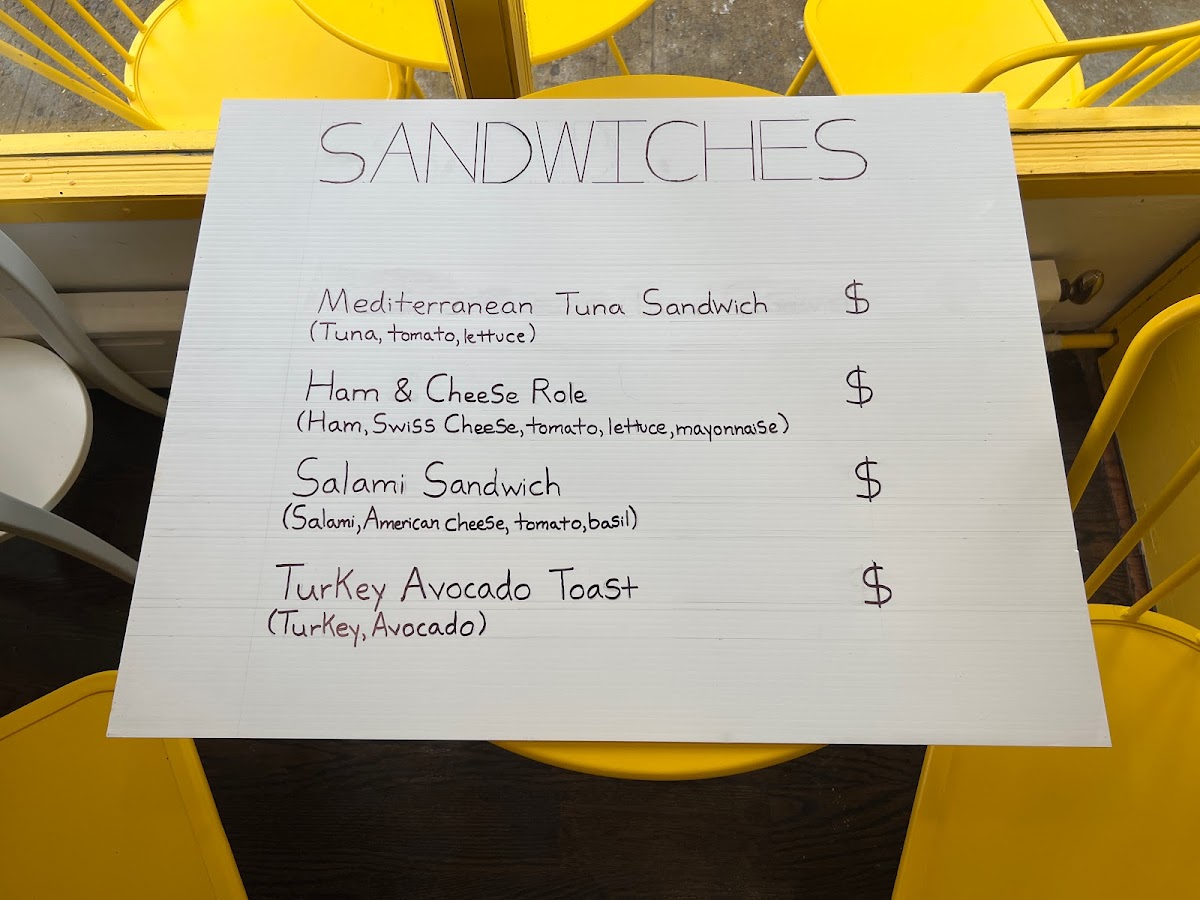 SANDWICHES
Mediterranean Tuna Sandwich $
(Tuna, tomato, lettuce)
Ham & Cheese Role $
(Ham, Swiss Cheese, tomato, lettuce, mayonnaise)
Salami Sandwich $
(Salami, American cheese, tomato, basil)
Turkey Avocado Toast $
(Turkey, Avocado)